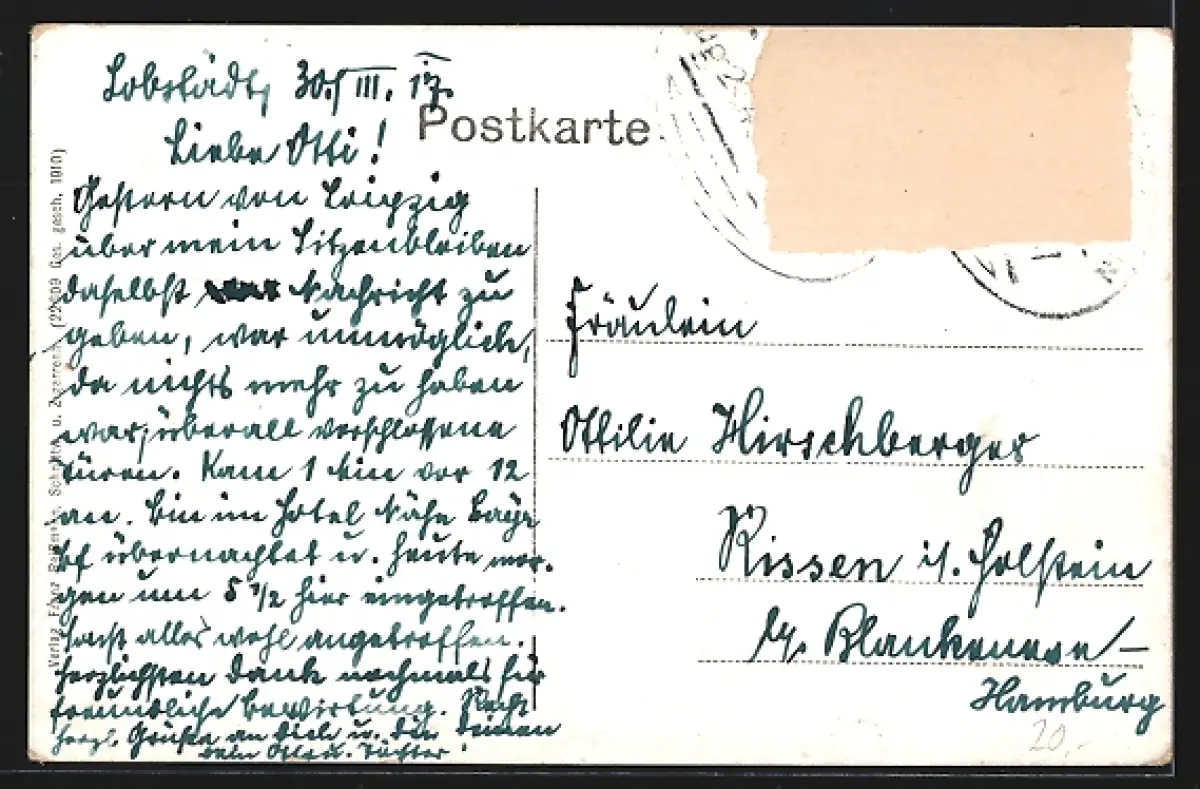 Lobstädt, 30./III. 17.
Postkarte
Liebe Otti!
Gestern von Leipzig
über mein Sitzenbleiben
daselbst Nachricht zu
geben, war unmöglich,
da nichts mehr zu haben
war, überall verschlossene
Türen. Kam 1 Min vor 12
an. Bin im Hotel Nähe Bayr
Bf übernachtet u. heute mor-
gen um 5 1/2 hier eingetroffen.
alles wohl angetroffen.
Herzlichsten Dank nochmals für
freundliche Bewirtung. Recht
herzl. Grüße an Dich u. die Deinen
dein
Fräulein
Ottilie Hirschberger
Rissen i/. Holstein
b/. Blankenese –
Hamburg
20,-
Verlag Franz
(22109 Ges. gesch. 1910)